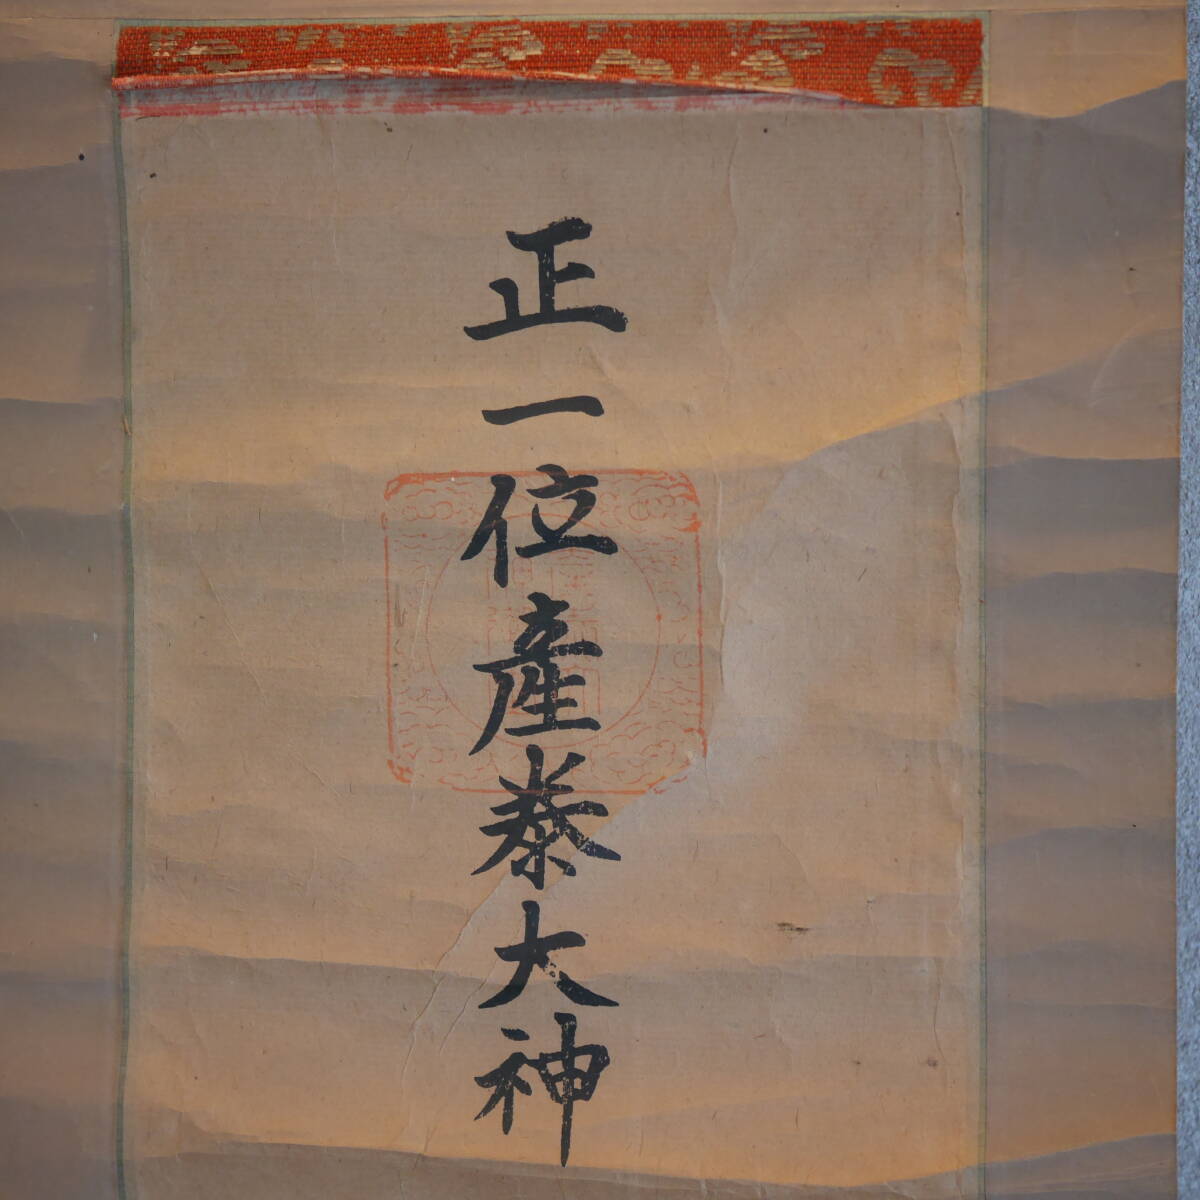 正一位産泰大神